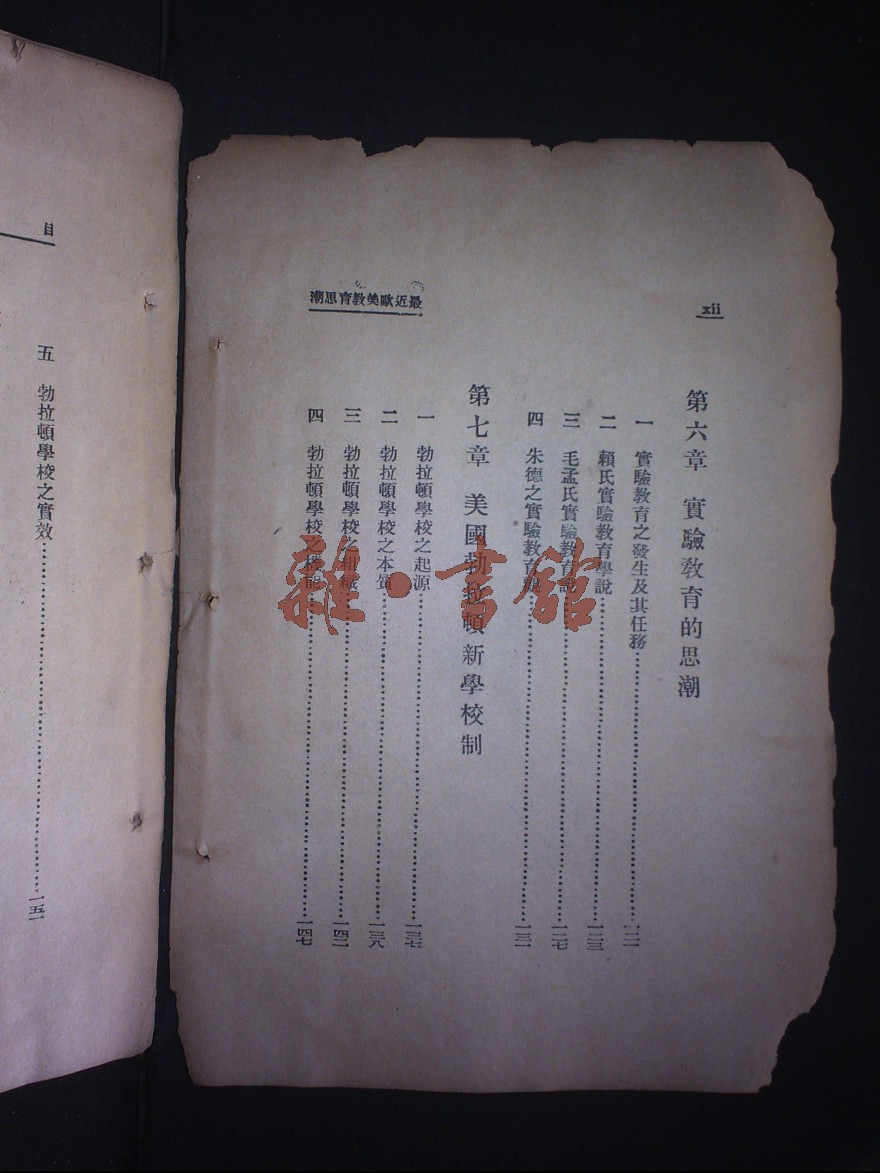 xii
最近歐美教育思潮
第六章 實驗教育的思潮
一 實驗教育之發生及其任務……………………
二 賴氏實驗教育學說……………………一二三
三 毛孟氏實驗教育說……………………一二七
四 朱德之實驗教育學……………………一三一
第七章 美國勃拉頓新學校制
一 勃拉頓學校之起源……………………一三七
二 勃拉頓學校之本質……………………一三八
三 勃拉頓學校之組織……………………一四二
四 勃拉頓學校之機能……………………一四七
目
五 勃拉頓學校之實效……………………一五一
雜·書館